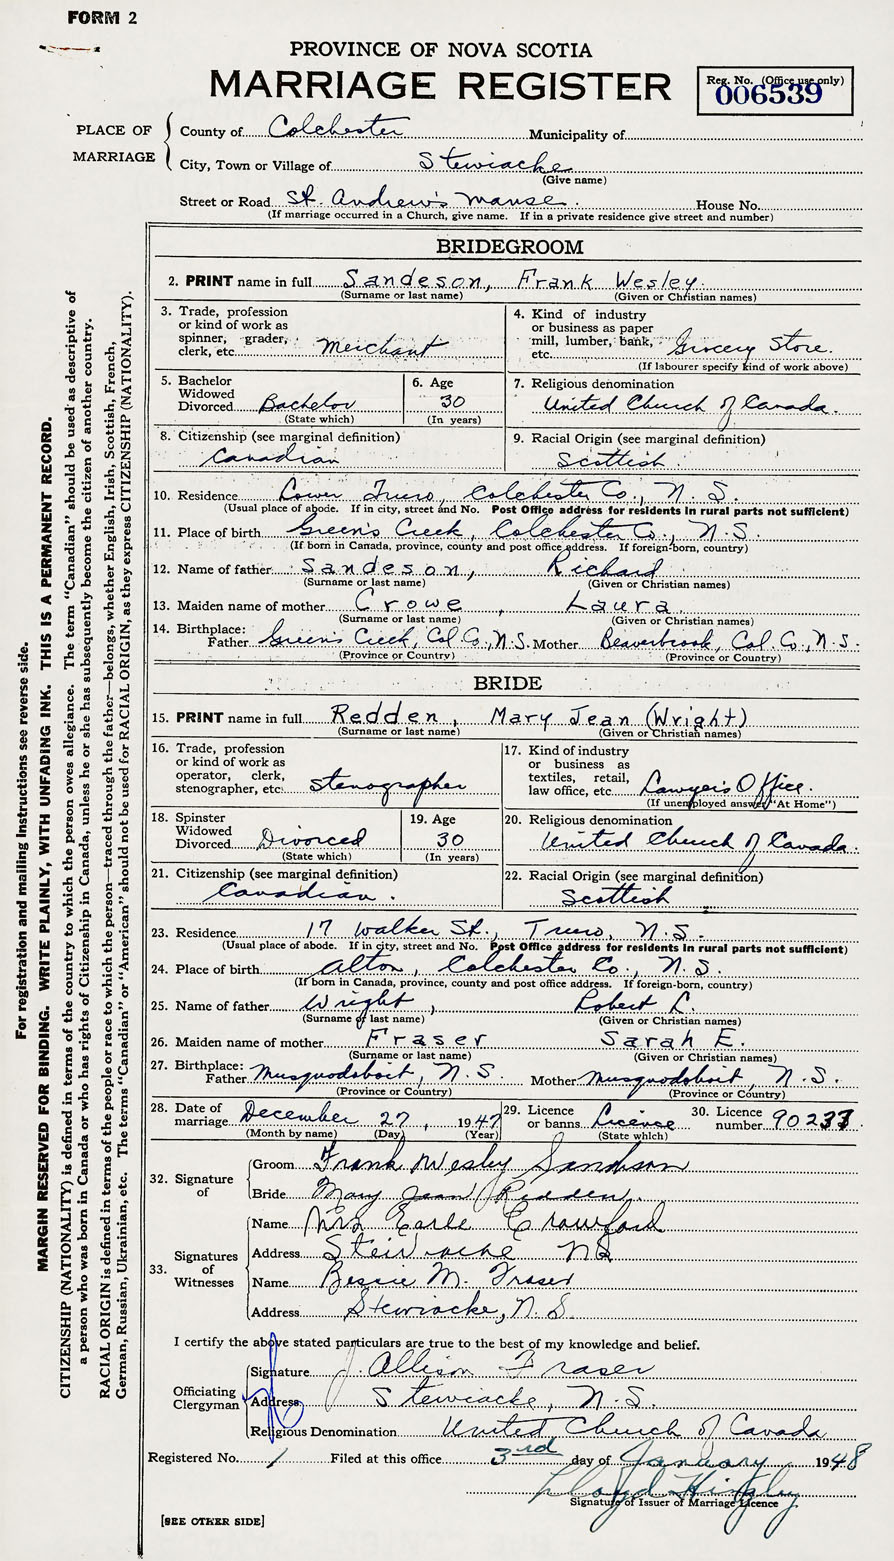 FORM 2
PROVINCE OF NOVA SCOTIA
MARRIAGE REGISTER
Reg. No. (Office use only)
006539
PLACE OF MARRIAGE
County of Colchester Municipality of
City, Town or Village of Stewiacke
(Give name)
Street or Road St. Andrew's Manse. House No.
(If marriage occurred in a Church, give name. If in a private residence give street and number)
BRIDEGROOM
2. PRINT name in full Sandeson, Frank Wesley.
(Surname or last name) (Given or Christian names)
3. Trade, profession or kind of work as spinner, grader, clerk, etc. Merchant
4. Kind of industry or business as paper mill, lumber, bank, etc. Grocery Store.
(If labourer specify kind of work above)
5. Bachelor Widowed Divorced Bachelor
(State which)
6. Age 30
(In years)
7. Religious denomination United Church of Canada.
8. Citizenship (see marginal definition) Canadian
9. Racial Origin (see marginal definition) Scottish.
10. Residence Lower Truro, Colchester Co., N.S.
(Usual place of abode. If in city, street and No. Post Office address for residents in rural parts not sufficient)
11. Place of birth Green's Creek, Colchester Co., N.S.
(If born in Canada, province, county and post office address. If foreign-born, country)
12. Name of father Sandeson, Richard
(Surname or last name) (Given or Christian names)
13. Maiden name of mother Crowe, Laura.
(Surname or last name) (Given or Christian names)
14. Birthplace: Father Green's Creek, Col. Co., N.S. Mother Beaverbrook, Col. Co., N.S.
(Province or Country) (Province or Country)
BRIDE
15. PRINT name in full Redden, Mary Jean (Wright)
(Surname or last name) (Given or Christian names)
16. Trade, profession or kind of work as operator, clerk, stenographer, etc. Stenographer
17. Kind of industry or business as textiles, retail, law office, etc. Lawyer's Office.
(If unemployed answer "At Home")
18. Spinster Widowed Divorced Divorced
(State which)
19. Age 30
(In years)
20. Religious denomination United Church of Canada.
21. Citizenship (see marginal definition) Canadian.
22. Racial Origin (see marginal definition) Scottish
23. Residence 17 Walker St., Truro, N.S.
(Usual place of abode. If in city, street and No. Post Office address for residents in rural parts not sufficient)
24. Place of birth Alton, Colchester Co., N.S.
(If born in Canada, province, county and post office address. If foreign-born, country)
25. Name of father Wright, Robert L.
(Surname or last name) (Given or Christian names)
26. Maiden name of mother Fraser Sarah E.
(Surname or last name) (Given or Christian names)
27. Birthplace: Father Musquodoboit, N.S. Mother Musquodoboit, N.S.
(Province or Country) (Province or Country)
28. Date of marriage December 27, 1947
(Month by name) (Day) (Year)
29. Licence or banns Licence
(State which)
30. Licence number 90233
32. Signature of
Groom Frank Wesley Sandeson
Bride Mary Jean Redden.
33. Signatures of Witnesses
Name Mrs Earle Crawford
Address Stewiacke NS
Name Bessie M. Fraser
Address Stewiacke, N.S.
I certify the above stated particulars are true to the best of my knowledge and belief.
Officiating Clergyman
Signature J. Allison Fraser
Address Stewiacke, N.S.
Religious Denomination United Church of Canada
Registered No. 1 Filed at this office 3rd day of January 1948
Signature of Issuer of Marriage Licence
[SEE OTHER SIDE]
For registration and mailing instructions see reverse side.
MARGIN RESERVED FOR BINDING. WRITE PLAINLY, WITH UNFADING INK. THIS IS A PERMANENT RECORD.
CITIZENSHIP (NATIONALITY) is defined in terms of the country to which the person owes allegiance. The term "Canadian" should be used as descriptive of
a person who was born in Canada or who has rights of Citizenship in Canada, unless he or she has subsequently become the citizen of another country.
RACIAL ORIGIN is defined in terms of the people or race to which the person—traced through the father—belongs, whether English, Irish, Scottish, French,
German, Russian, Ukrainian, etc. The terms "Canadian" or "American" should not be used for RACIAL ORIGIN, as they express CITIZENSHIP (NATIONALITY).